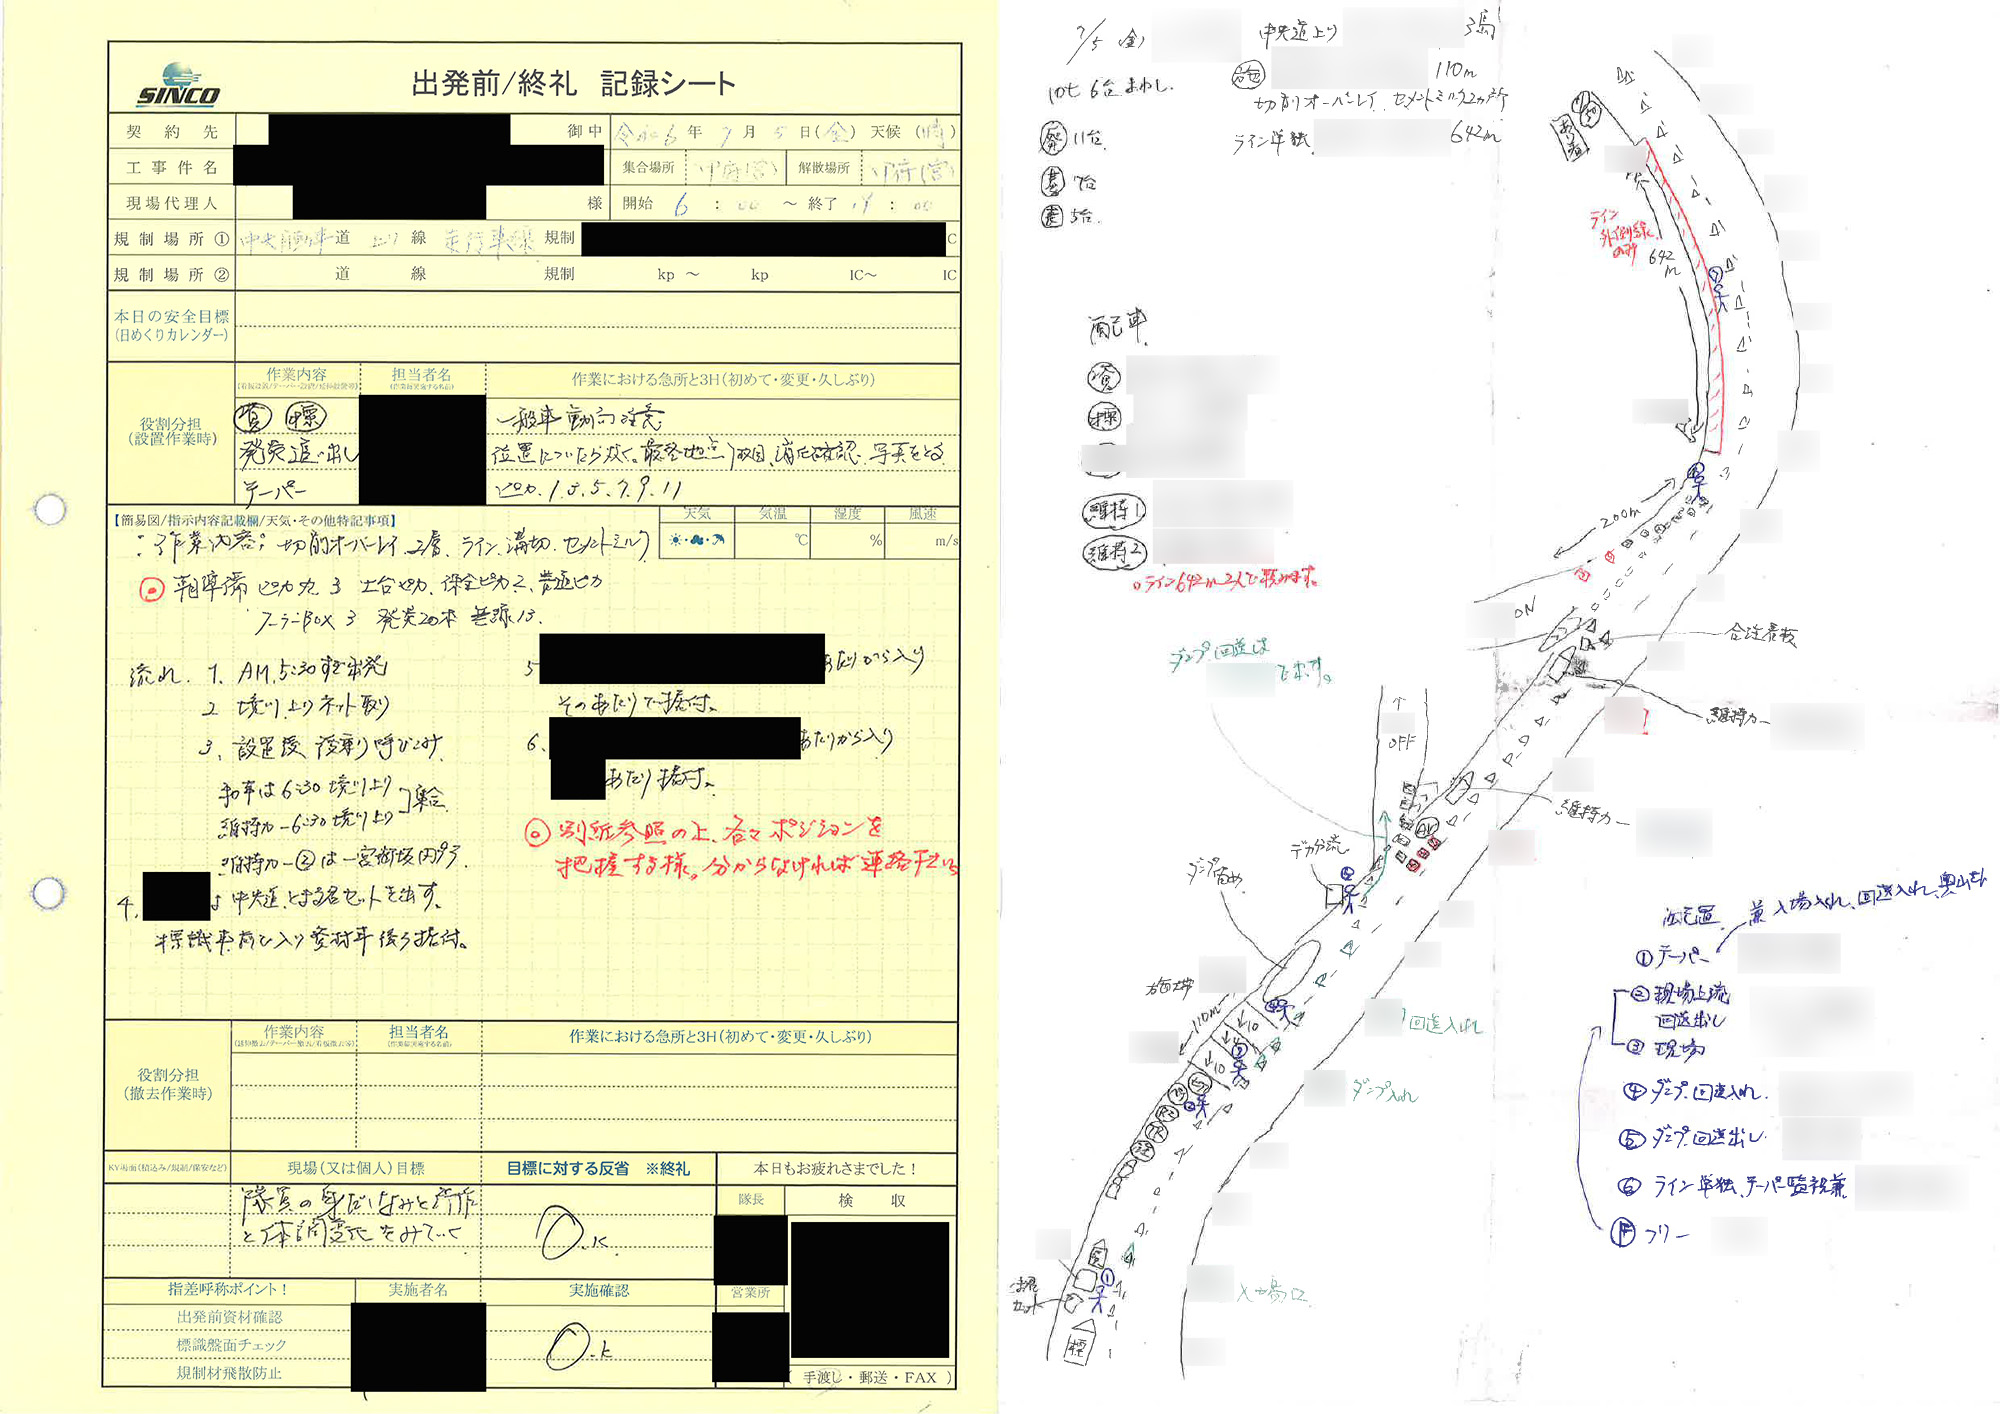 SINCO
出発前/終礼 記録シート
契約先 御中 令和6年7月5日(金) 天候(晴)
工事件名 集合場所 甲府(営) 解散場所 甲府(営)
現場代理人 様 開始 6:00 ～ 終了 :00
規制場所① 中央自動車道 上り線 走行車線 規制 C
規制場所② 道 線 規制 kp ～ kp IC～ IC
本日の安全目標
(日めくりカレンダー)
作業内容 担当者名 作業における急所と3H(初めて・変更・久しぶり)
役割分担
(設置作業時)
資 標 一般車動向注意
発炎追い出し 位置についたら炊く。最終地点 消化確認、写真をとる
テーパー ピカ.1.3.5.7.9.11
【簡易図/指示内容記載欄/天気・その他特記事項】
天気 気温 湿度 風速
℃ % m/s
:作業内容; 切削オーバーレイ 2層、ライン、溝切、セメントミルク
朝準備 ピカ 3 土台ピカ、保全ピカ2、普通ピカ
クーラーBOX 3 発炎20本 無線13.
流れ. 1. AM 5:30すぎ出発
2 境川上りネット取り
3. 設置後、後乗り呼びこみ
和車は6:30 境川上り
維持カー6:30 境川上り
集合
維持カー②は一宮御坂内プラ
4. は中央道とまる君セットを出す。
標識車前で入り資材車後ろ据付。
5 あたりから入り
そのあたりで据付。
6. あたりから入り
あたり据付。
◎ 別紙参照の上、各々ポジションを
把握する様。分からなければ連絡下さい
作業内容 担当者名 作業における急所と3H(初めて・変更・久しぶり)
役割分担
(撤去作業時)
KY場面(積込み/規制/保安など) 現場(又は個人)目標 目標に対する反省 ※終礼 本日もお疲れさまでした！
隊員の身だしなみと所作
と体調変化をみていく
O.K.
隊長 検収
指差呼称ポイント！ 実施者名 実施確認 営業所
出発前資材確認
標識盤面チェック
規制材飛散防止
O.K
(手渡し・郵送・FAX)
7/5 (金) 中央道上り
10t 6台まわし. 110m
切削オーバーレイ.セメントミルク2ヵ所
11台. ライン単独 642m
7台
5台.
ライン
外側線
のみ
642
m
配車
資
標
維持1
維持2
○ライン642m 2人で頼みます。
200m
ON
合流看板
維持カー
ダンプ.回送は
です。
OFF
維持カー
デカ分流
ダンプ溜め
施工帯
110m
10
10
回送入れ
ダンプ入れ
入場口
標
配置 兼 入場入れ、回送入れ、
① テーパー
② 現場上流
回送出し
③ 現場
④ ダンプ.回送入れ.
⑤ ダンプ.回送出し.
⑥ ライン単独、テーパー監視兼
F フリー